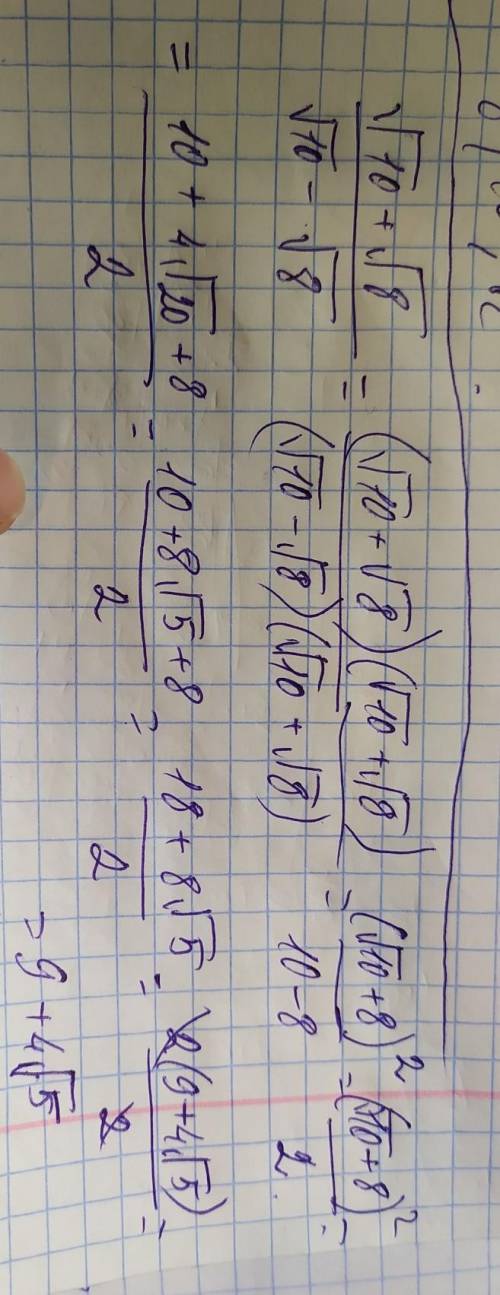 (√10 + √8)/(√10 - √8) = ((√10 + √8)(√10 + √8))/((√10 - √8)(√10 + √8)) = (√10 + 8)²/(10 - 8) = (√10 + 8)²/2 =
= (10 + 4√20 + 8)/2 = (10 + 8√5 + 8)/2 = (18 + 8√5)/2 = 2(9 + 4√5)/2 =
= 9 + 4√5